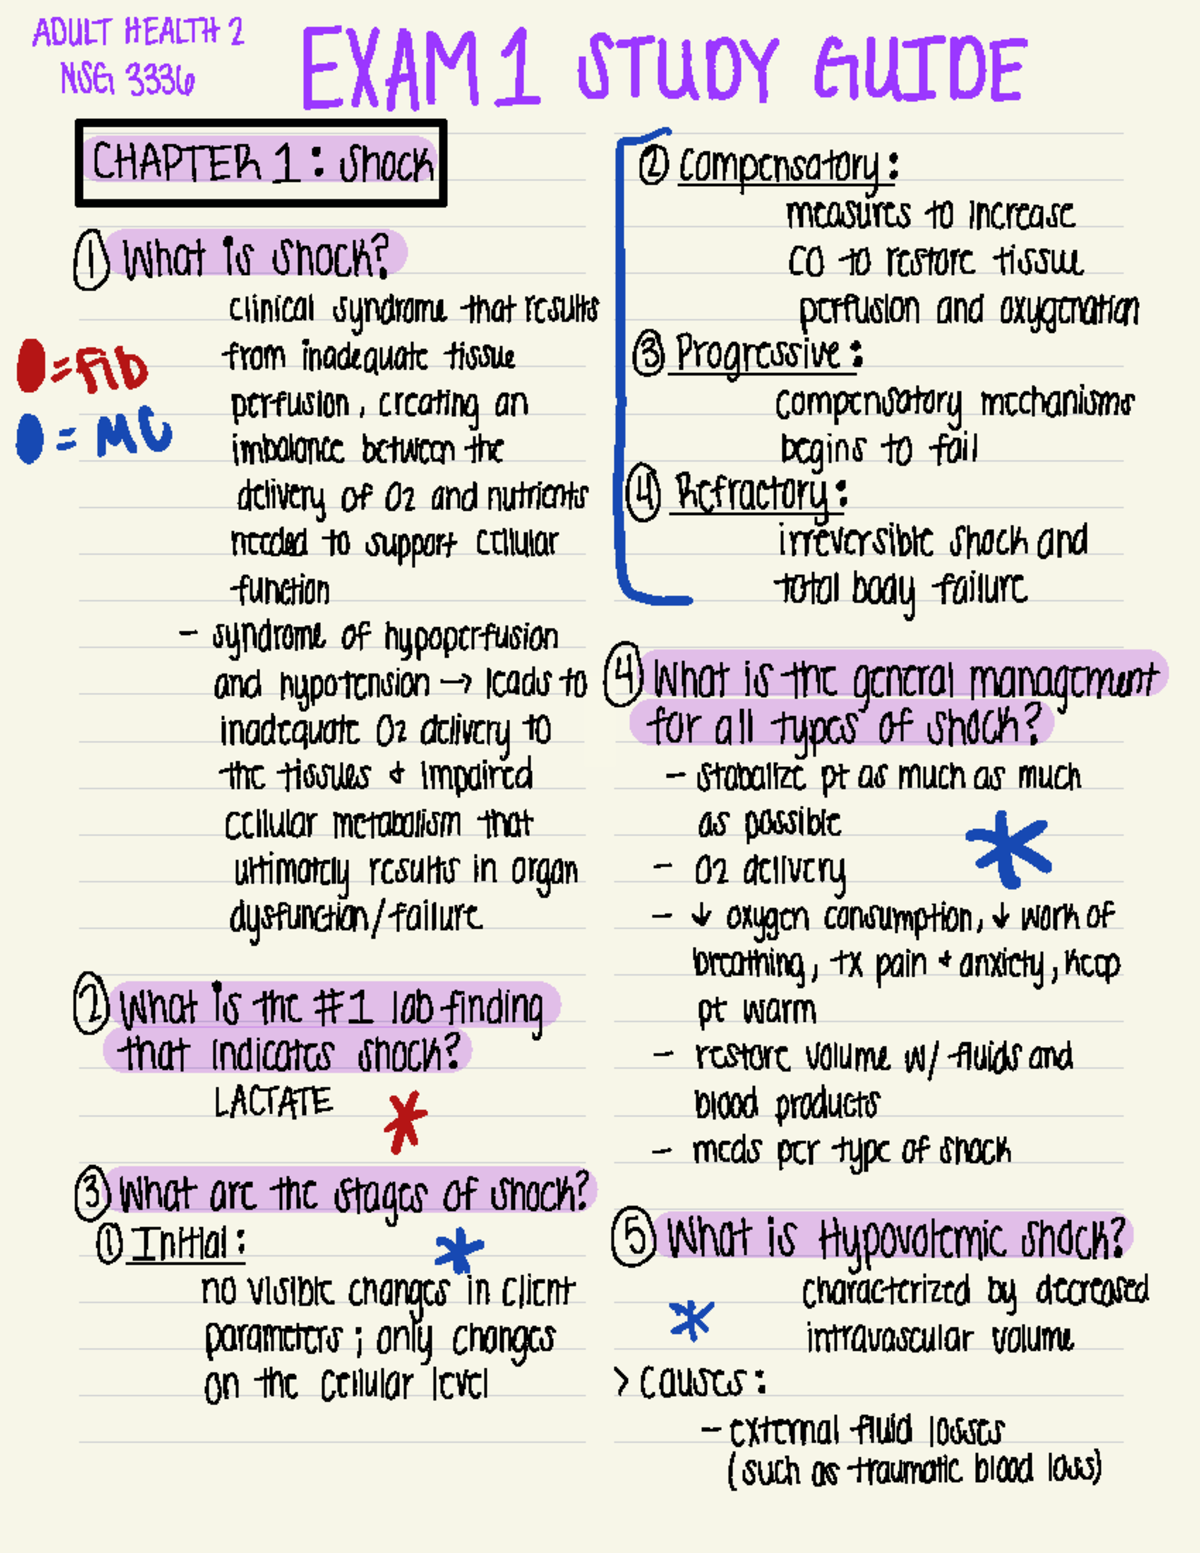 ADULT HEALTH 2
NSG 3336
EXAM 1 STUDY GUIDE
CHAPTER 1: Shock
① What is shock?
clinical syndrome that results
from inadequate tissue
perfusion, creating an
imbalance between the
delivery of O2 and nutrients
needed to support cellular
function
- syndrome of hypoperfusion
and hypotension → leads to
inadequate O2 delivery to
the tissues & impaired
cellular metabolism that
ultimately results in organ
dysfunction/failure
= fib
= MC
② What is the #1 lab finding
that indicates shock?
LACTATE *
③ What are the stages of shock?
① Initial: *
no visible changes in client
parameters; only changes
on the cellular level
② Compensatory:
measures to increase
CO to restore tissue
perfusion and oxygenation
③ Progressive:
compensatory mechanisms
begins to fail
④ Refractory:
irreversible shock and
total body failure
④ What is the general management
for all types of shock?
- stabalize pt as much as much
as possible *
- O2 delivery
- ↓ oxygen consumption, ↓ work of
breathing, tx pain & anxiety, keep
pt warm
- restore volume w/ fluids and
blood products
- meds per type of shock
⑤ What is Hypovolemic shock?
characterized by decreased
* intravascular volume
> causes:
- external fluid losses
(such as traumatic blood loss)